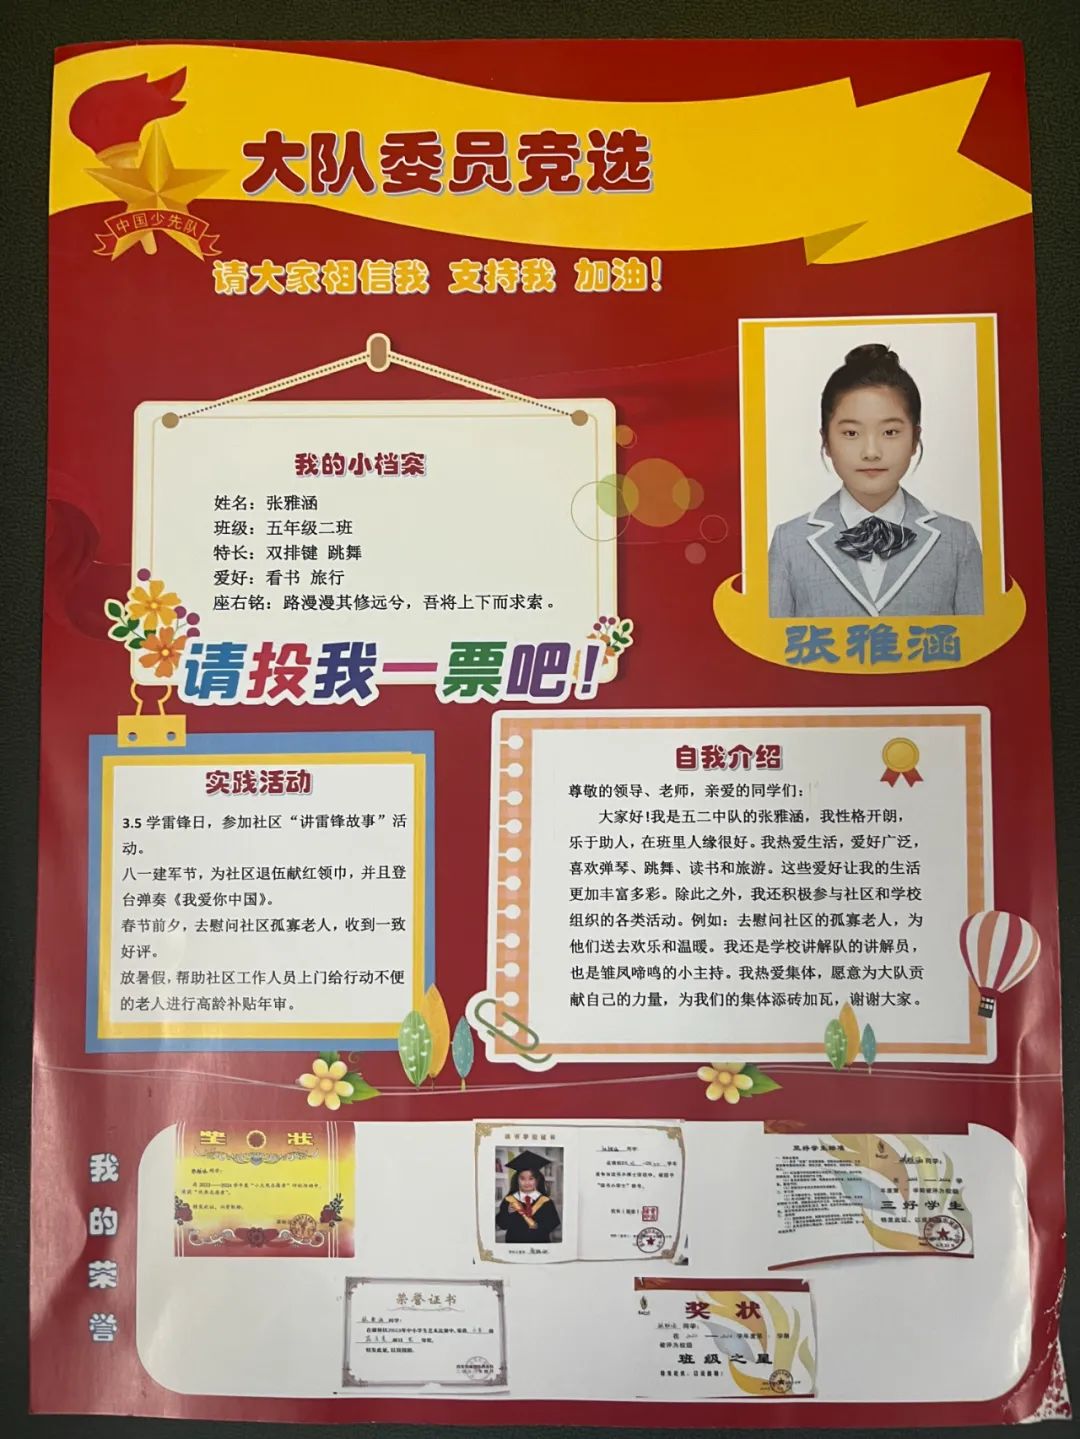 大队委员竞选
中国少先队
请大家相信我 支持我 加油！
我的小档案
姓名：张雅涵
班级：五年级二班
特长：双排键 跳舞
爱好：看书 旅行
座右铭：路漫漫其修远兮，吾将上下而求索。
请投我一票吧！
张雅涵
实践活动
3.5 学雷锋日，参加社区“讲雷锋故事”活
动。
八一建军节，为社区退伍献红领巾，并且登
台弹奏《我爱你中国》。
春节前夕，去慰问社区孤寡老人，收到一致
好评。
放暑假，帮助社区工作人员上门给行动不便
的老人进行高龄补贴年审。
自我介绍
尊敬的领导、老师，亲爱的同学们：
大家好！我是五二中队的张雅涵，我性格开朗，
乐于助人，在班里人缘很好。我热爱生活，爱好广泛，
喜欢弹琴、跳舞、读书和旅游。这些爱好让我的生活
更加丰富多彩。除此之外，我还积极参与社区和学校
组织的各类活动。例如：去慰问社区的孤寡老人，为
他们送去欢乐和温暖。我还是学校讲解队的讲解员，
也是雏凤啼鸣的小主持。我热爱集体，愿意为大队贡
献自己的力量，为我们的集体添砖加瓦，谢谢大家。
我的荣誉
奖状
同学：
特发此证，以资鼓励。
读书学位证书
同学：
三好学生标准
同学：
三好学生
特发此证，以资鼓励
荣誉证书
同学：
特发此证，以资鼓励。
奖状
同学：
被评为校级
班级之星
特发此证，以资鼓励！